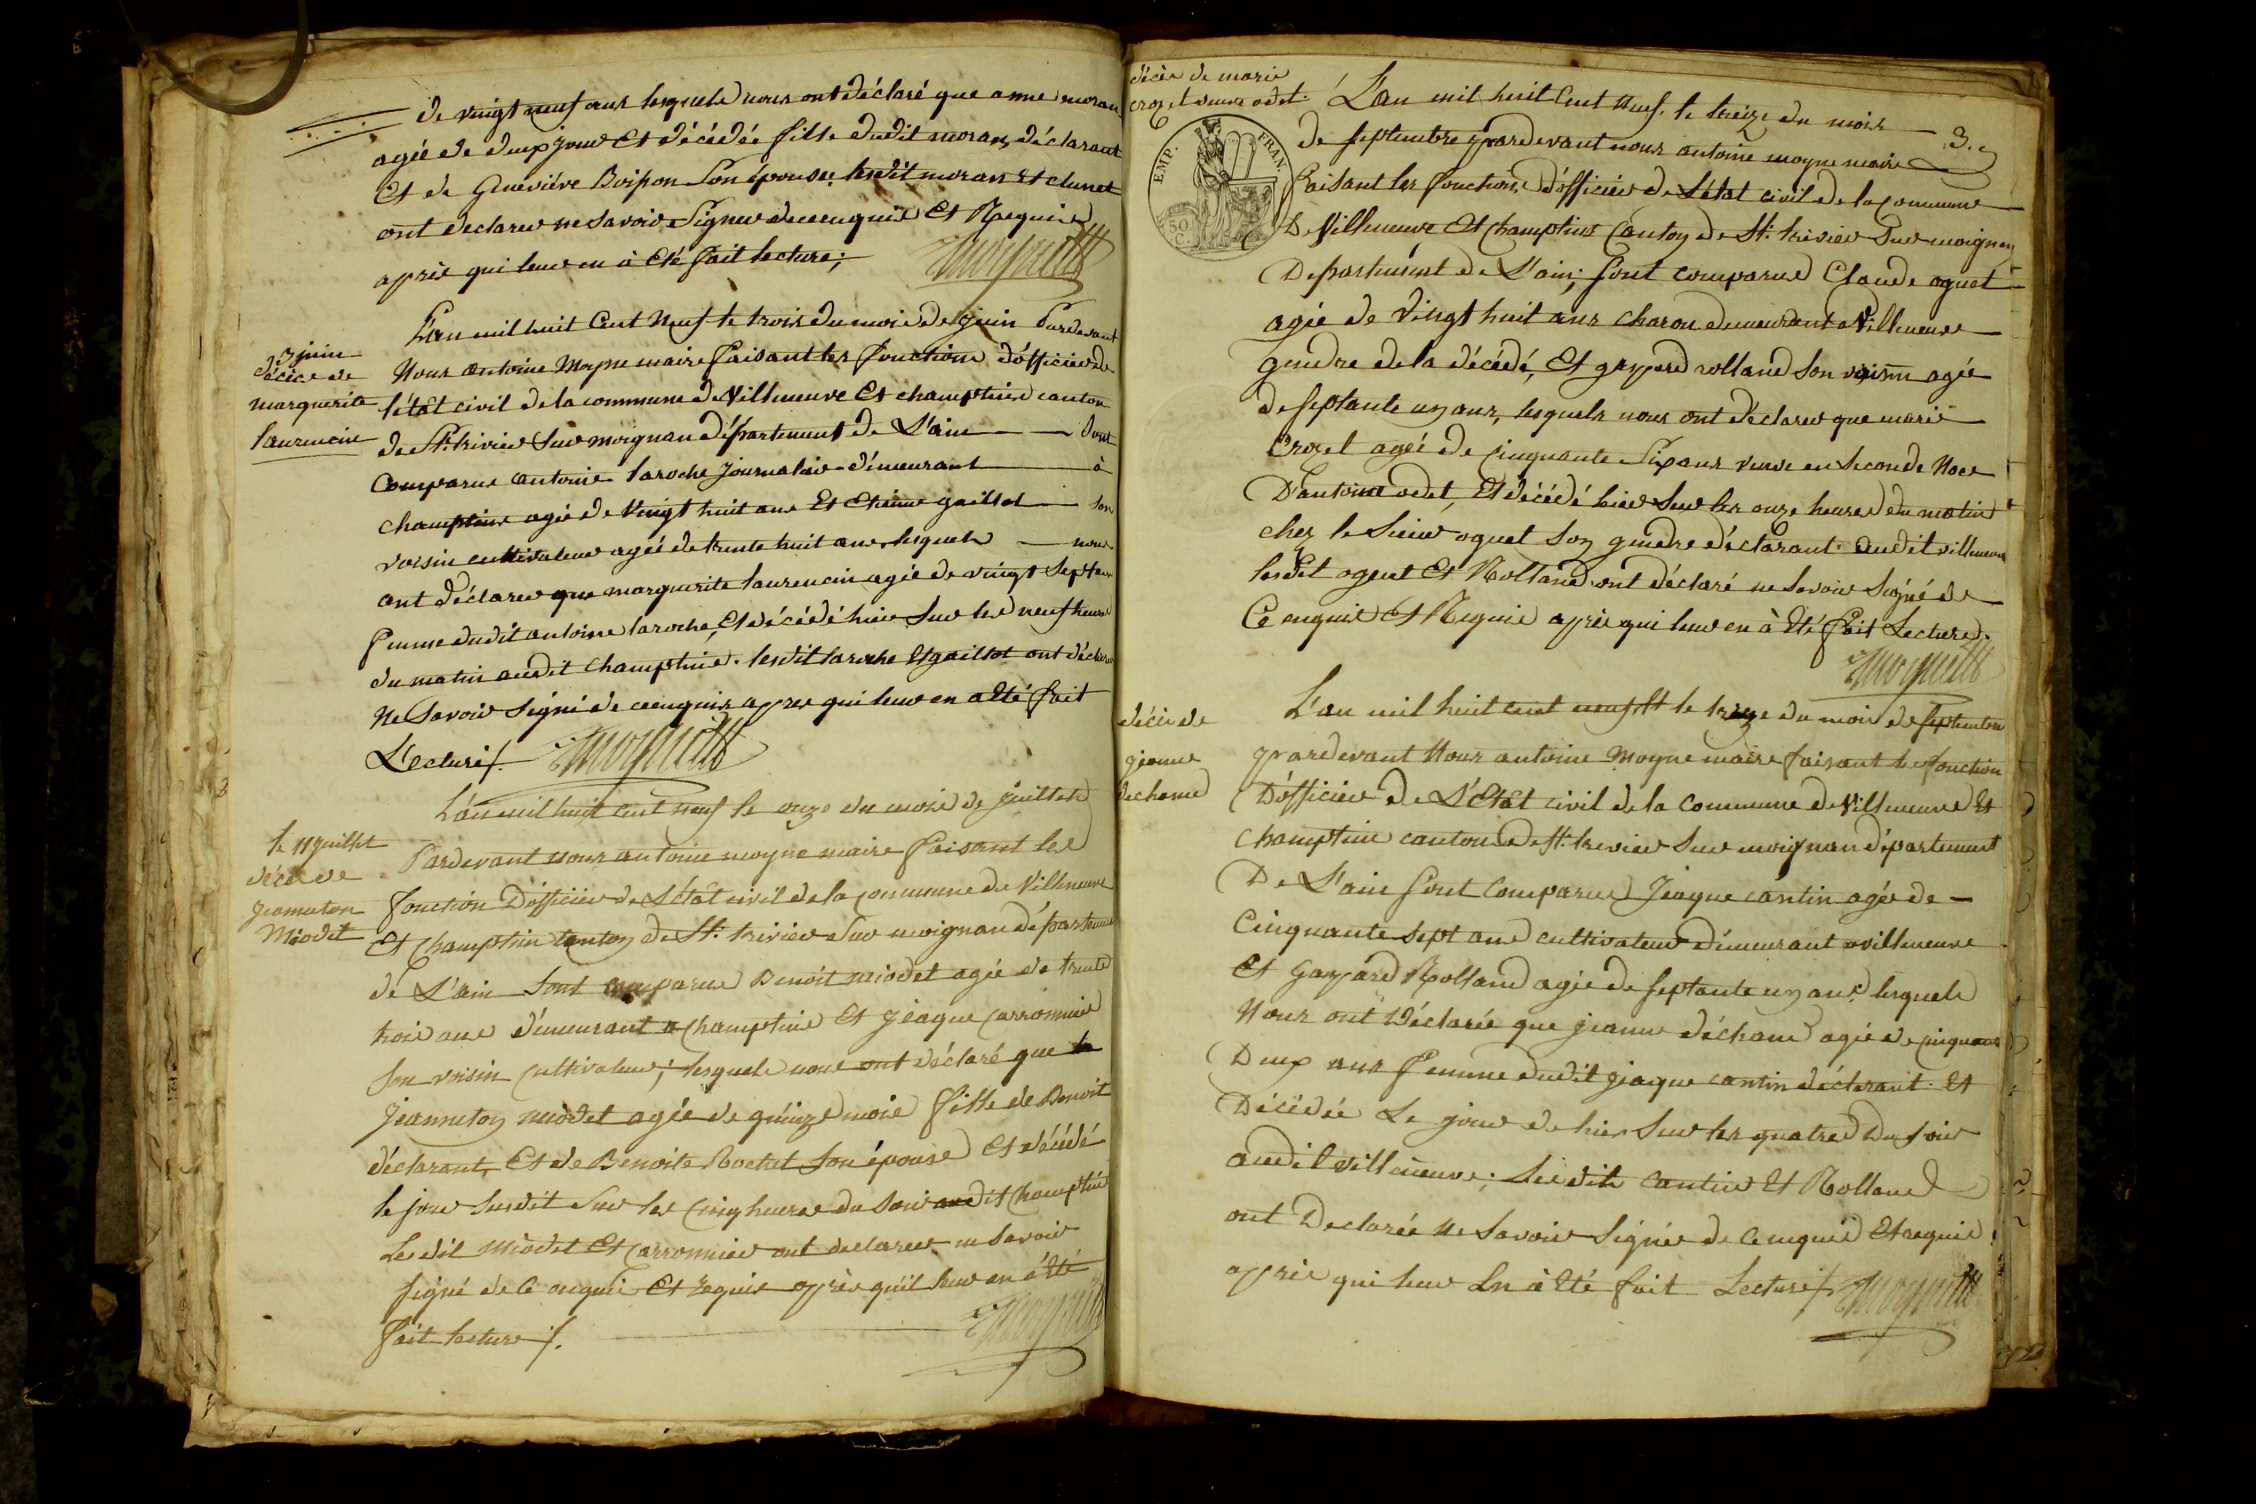 de vingt neuf ans lesquels nous ont déclaré que anne moran
agée de deux jour Et décédée fille dudit moran déclarant
Et de Geneviéve Boisson Son épouse. lesdit moran Et clunet
ont declarer ne Savoir Signer de cenquis Et Requis
après qui leur en à été fait lecture;
3 juin
décice de
marguerite
laurencin
L'an mil huit Cent Neuf le trois du mois de juin Pardevant
Nous antoine Moyne maire faisant les fonctions d'officier de
l'état civil de la commune de Villeneuve Et champtins canton
de St. trivier Sur moignan département de L'ain Sont
Comparus antoine laroche journalier démeurant à
champtins agée de Vingt huit ans Et Etienne gaillot son
voisin cultivateur ageé de trente huit ans lesquels nous
ont déclarer que marguerite laurencin agée de vingt Sept ans
femme dudit antoine laroche, Et décédé hier Sur les neuf heures
du matin audit champtins. lesdit laroche Et gaillot ont déclarer
Ne Savoir Signé de cenquis apres qui leur en a Eté fait
L'ecture/.
le 11 juillet
décés de
jeanneton
Miodet
L'an mil huit cent neuf le onze du mois de juillet
Pardevant nous antoine moyne maire faisant les
fonction D'officier de L'état civil de la commune de Villeneuve
Et champtin canton de St. trivier Sur moignan département
de L'ain Sont comparus Benoit miodet agée de trente
trois ans démeurant a champtins Et jéaque carronnier
Son voisin cultivateur; lesquels nous ont déclaré que la
jeanneton miodet agée de quinze mois fille de Benoit
déclarant, Et de Benoite Rochet Son épouse Et décédé
le jour Susdit Sur les cinq heures du Soir audit champtin
Lesdit Miodet Et carronnier ont declarer ne Savoir
Signé de ce enquis Et requis après qu'il leur en à été
fait lecture /.
décès de marie
crozet veuve odet.
3.e
EMP. FRAN.
50 C.
L'an mil huit Cent Neuf. le treize du mois
de Septembre pardevant nous antoine moyne maire
faisant les fonctions d'officier de L'état civil de la commune
De Villeneuve Et champtins Canton de St. trivier Sur moignan
Département de L'ain; Sont comparus Claude oguet
agée de Vingt huit ans charon demeurant a Villeneuve
Gendre de la décédé, Et gaspard rolland Son voisin agée
de Septante un ans, lesquels nous ont déclarer que marie
Crozet ageé de cinquante Six ans veuve en Seconde Noce
D'antoine odet, Et décédé hier Sur les onze heures du matin
chez le Sieur oguet Son gendre déclarant. dudit villeneuve
lesdit oguet Et Rolland ont déclaré ne Savoir Signé de
Ce enquis Et Requis après qui leur en à Eté fait Lecture.
décès de
jeanne
dechame
L'an mil huit cent neuf Et le treize du mois de Septembre
pardevant Nous antoine Moyne maire faisant les fonction
D'officier de L'Etât civil de la commune de Villeneuve Et
champtins canton de St. trivier Sur moignan département
De L'ain Sont Comparus Jéaque cantin agée de
Cinquante Sept ans cultivateur démeurant a villeneuve
Et Gaspard Rolland agée de Septante un ans. lesquels
Nous ont Déclarée que jeanne déchame agée de cinquante
Deux ans femme dudit jéaque cantin déclarant. Et
Décédée Le jour de hier Sur les quatres Du Soir
audit villeneuve; Lesdits cantin Et Rolland
ont Declarée Ne Savoir Signée de Cenquis Et requis
après qui leur En à Eté fait Lecture/.